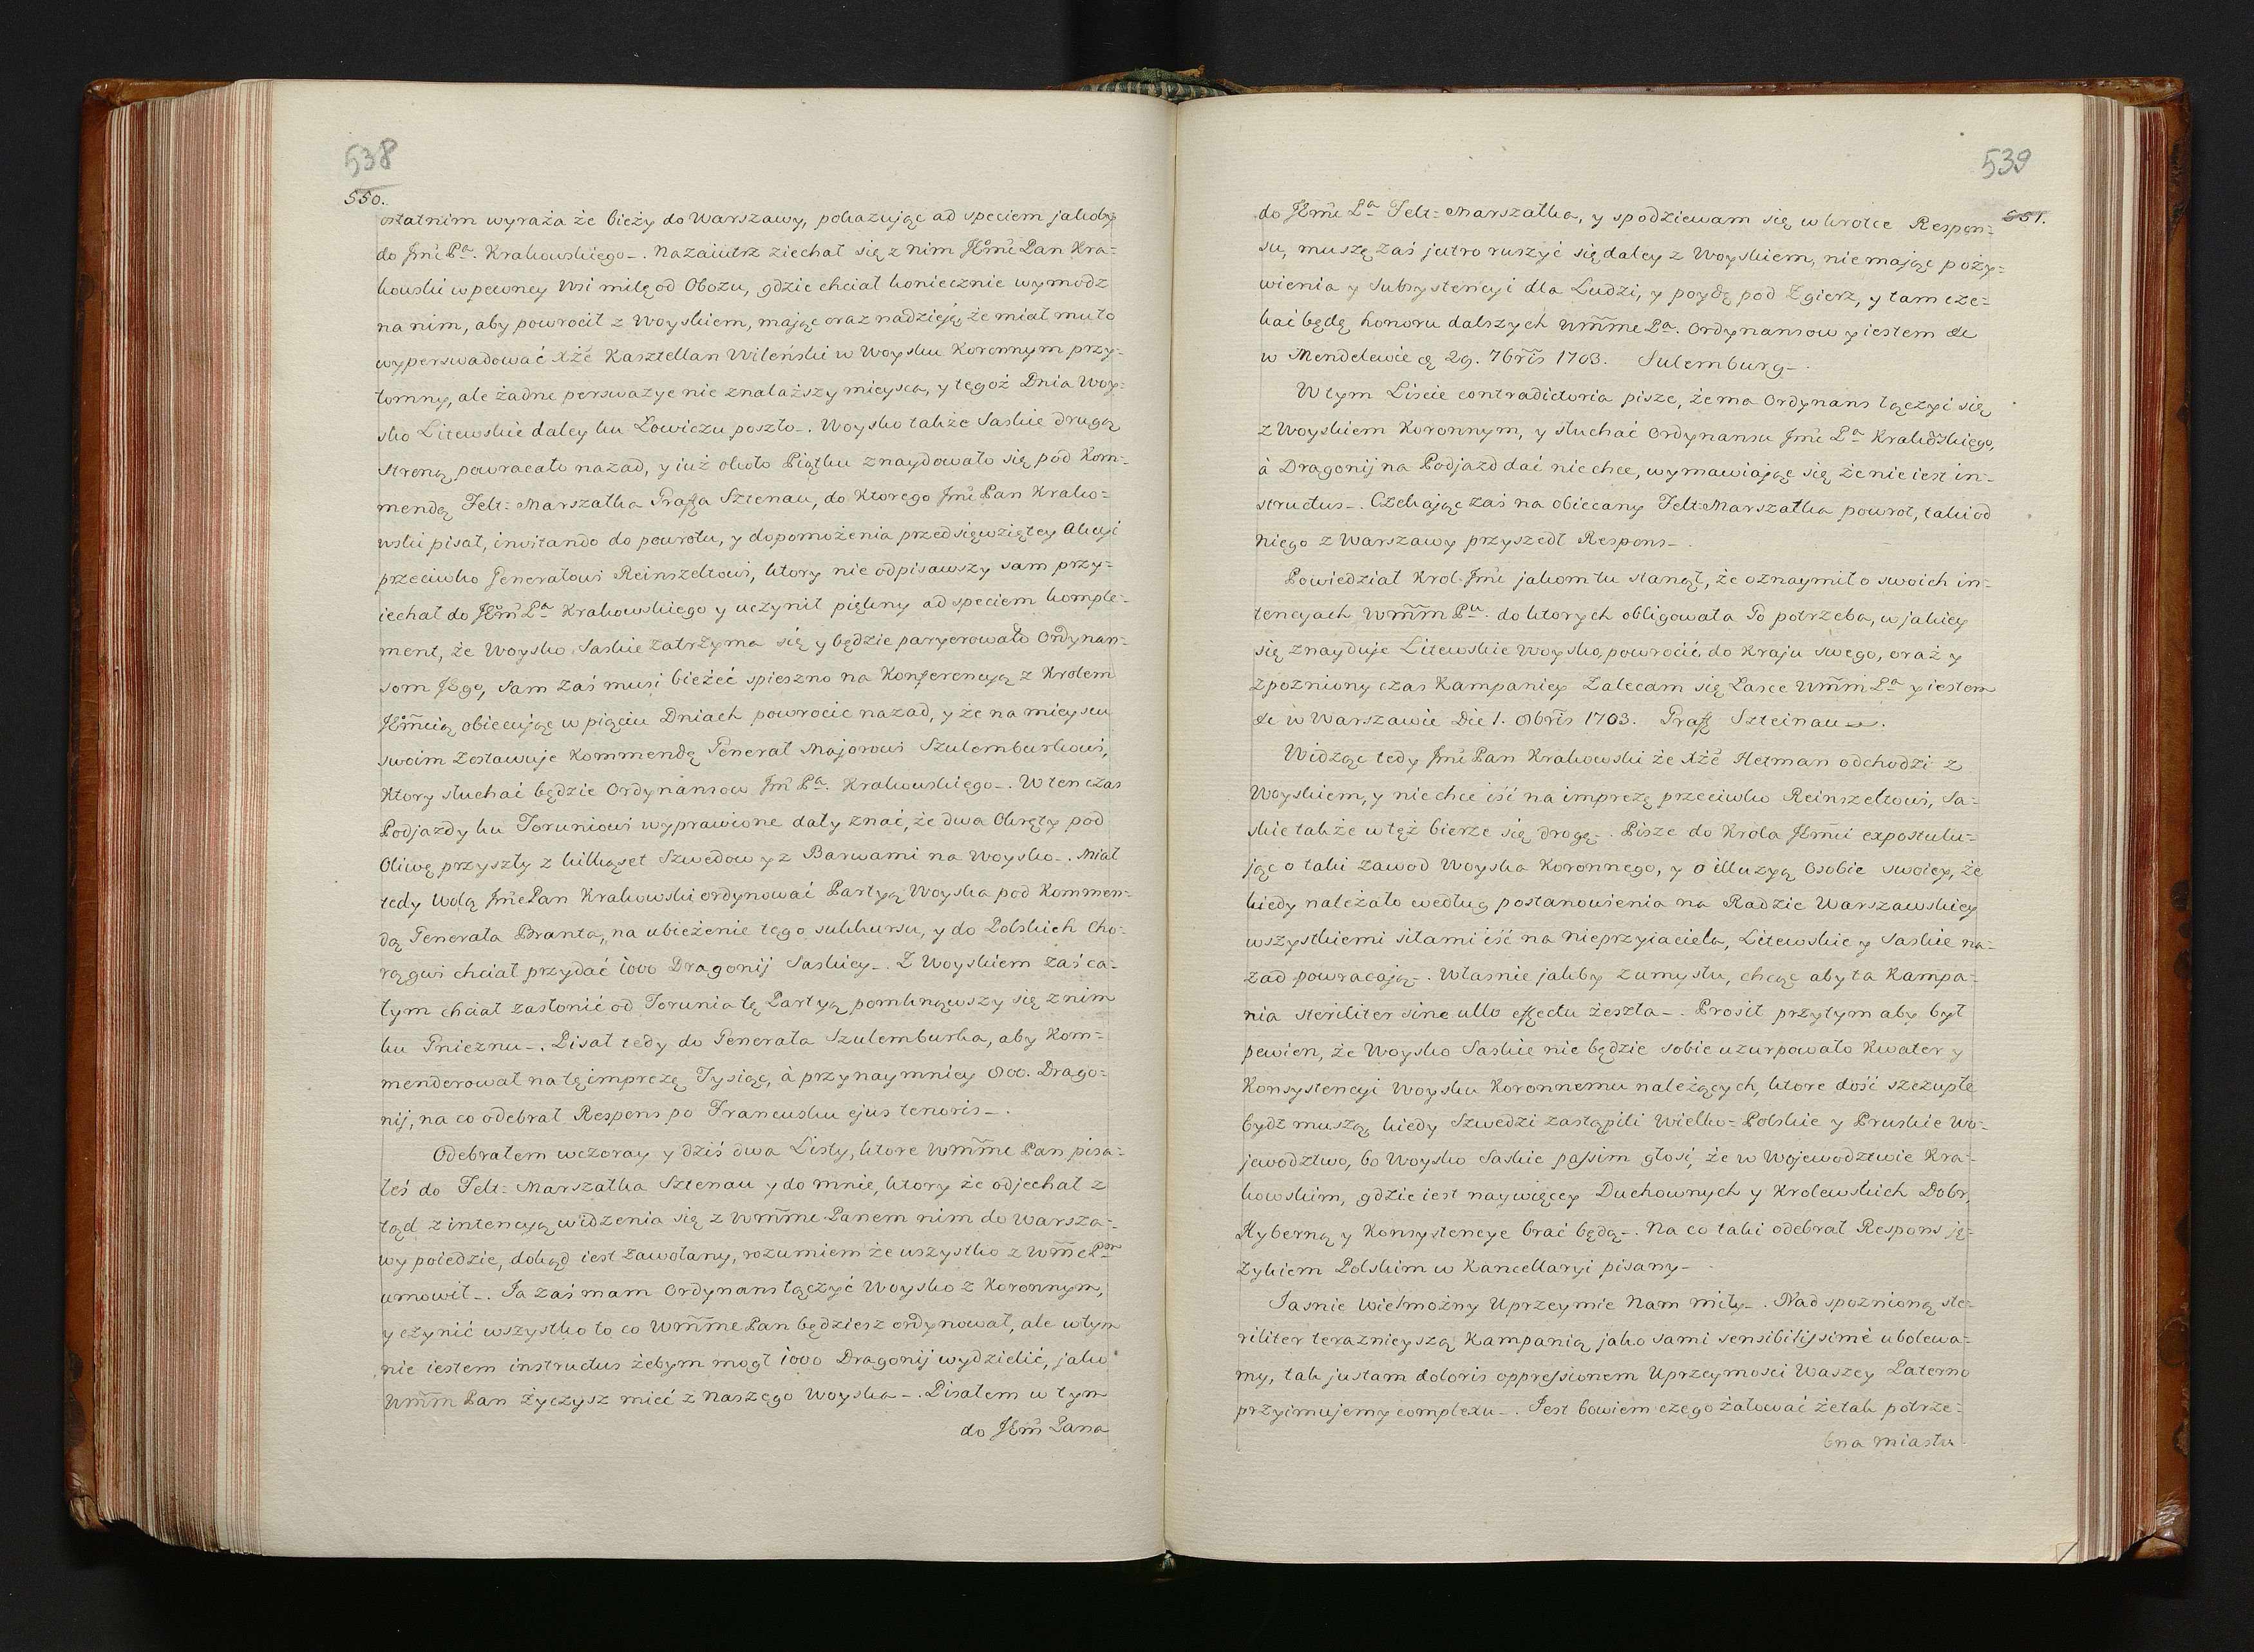 538
550.
ostatnim wyraża że bieży do Warszawy, pokazując ad speciem jakoby
do Jmć Pª. Krakowskiego_. Nazaiutrz ziechał się z nim JEmć Pan Kra=
kowski w pewney wsi milę od Obozu, gdzie chciał koniecznie wymodz
na nim, aby powrocił z Woyskiem, mając oraz nadzieję że miał mu to
wyperswadować Xżě Kasztellan Wileński w Woysku Koronnym przy=
tomny, ale żadne perswazye nie znalazszy mieysca, y tegoż Dnia Woy=
sko Litewskie daley ku Łowiczu poszło_. Woysko także Saskie drugą
stroną powracało nazad, y iuż około Piątku znaydowało się pod Kom=
mendą Felt=Marszałka Graffa Sztenau, do ktorego Jmć Pan Krako=
wski pisał, invitando do powrotu, y dopomożenia przedsięwziętey Akcyi
przeciwko Generałowi Reinszeltowi, ktory nie odpisawszy sam przy=
iechał do JEm̃ Pª Krakowskiego y uczynił piękny ad speciem komple=
ment, że Woysko Saskie zatrzyma się y będzie paryerowało Ordynan=
som Jego, sam zaś musi bieżeć spieszno na Konferencyą z Krolem
JEm̃cią obiecując w pięciu Dniach powrocić nazad, y że na mieyscu
swoim zostawuje Kommendę Generał Majorowi Szulemburkowi,
Ktory słuchać będzie Ordynansow Jm̃ Pª. Krakowskiego_. W ten czas
Podjazdy ku Toruniowi wyprawione dały znać, że dwa Okręty pod
Oliwę przyszły z kilkąset Szwedow y z Barwami na Woysko_. Miał
tedy wolą Jmć Pan Krakowski ordynować Partyą Woyska pod Kommen=
dą Generała Branta, na ubieżenie tego sukkursu, y do Polskich Cho=
rągwi chciał przydać 1000 Dragonij Saskiey_. Z Woyskiem zaś ca=
łym chciał zasłonić od Torunia tę Partyą pomknąwszy się z nim
ku Gnieznu_. Pisał tedy do Generała Szulemburka, aby Kom=
menderował na tę imprezę Tysiąc, à przynaymniey 800. Drago=
nij, na co odebrał Respons po Francusku ejus tenoris_.
Odebrałem wczoray y dziś dwa Listy, ktore Wm̃mć Pan pisa=
łeś do Felt=Marszałka Sztenau y do mnie, ktory że odjechał z
tąd z intencyą widzenia się z Wm̃mć Panem nim do Warsza=
wy poiedzie, dokąd iest zawołany, rozumiem że wszystko z Wm̃ć Pm
umowił_. Ja zaś mam Ordynans łączyć Woysko z Koronnym,
y czynić wszystko to co Wm̃mć Pan będziesz ordynował, ale w tym
nie iestem instructus żebym mogł 1000 Dragonij wydzielić, jako
Wm̃m Pan życzysz mieć z Naszego Woyska_. Pisałem w tym
do JEm̃ Pana
539
551.
do JEm̃ć Pª Felt=Marszałka, y spodziewam się wkrotce Respon=
su, muszę zaś jutro ruszyć się daley z Woyskiem, nie mając poży=
wienia y Subsystencyi dla Ludzi, y poydę pod Zgierz, y tam cze=
kać będę honoru dalszych Wm̃mć Pª. Ordynansow y iestem &c
w Mendelewie 29. 7bris 1703. Sulemburg_.
W tym Liscie contradictoria pisze, że ma Ordynans łączyć się
z Woyskiem Koronnym, y słuchać Ordynansu Jmć Pª Krakowskiego,
à Dragonij na Podjazd dać nie chce, wymawiając się że nie iest in=
structus_. Czekając zaś na obiecany Felt=Marszałka powrot, taki od
niego z Warszawy przyszedł Respons_
Powiedział Krol Jmć jakom tu stanął, że oznaymił o swoich in=
tencyach Wm̃m̃ Pu. do ktorych obligowała Go potrzeba, w jakiey
się znayduje Litewskie Woysko, powrocić do Kraju swego, oraz y
zpozniony czas Kampaniey Zalecam się Łasce Wm̃m Pª y iestem
&c w Warszawie Die 1. 8bris 1703. Graff Szteinau_.
Widząc tedy Jmć Pan Krakowski że Xżě Hetman odchodzi z
Woyskiem, y nie chce iść na imprezę przeciwko Reinszeltowi, Sa=
skie także w tęż bierze się drogę_. Pisze do Krola JEm̃ci expostulu=
jąc o taki zawod Woyska Koronnego, y o illuzyą Osobie swoiey, że
kiedy należało według postanowienia na Radzie Warszawskiey
wszystkiemi siłami iść na Nieprzyiaciela, Litewskie y Saskie na=
zad powracają_. Własnie jakby z umysłu, chcąc aby ta Kampa=
nia steriliter sine ullo effectu zeszła_. Prosił przytym aby był
pewien, że Woysko Saskie nie będzie sobie uzurpowało Kwater y
Konsystencyi Woysku Koronnemu należących, ktore dość szczupłe
bydź muszą kiedy Szwedzi zastąpili Wielko=Polskie y Pruskie Wo=
jewodztwo, bo Woysko Saskie passim głosi, że w Wojewodztwie Kra=
kowskim, gdzie iest naywięcey Duchownych y Krolewskich Dobr,
Hyberną y Konsystencye brać będą_. Na co taki odebrał Respons ję=
zykiem Polskim w Kancellaryi pisany_
Jasnie Wielmożny Uprzeymie Nam miły_. Nad spoznioną ste=
riliter teraznieyszą Kampanią jako sami sensibilissimè ubolewa=
my, tak justam doloris oppressionem Uprzeymosci Waszey Paterno
przyimujemy complexu_. Jest bowiem czego żałować że tak potrze=
bna miasta